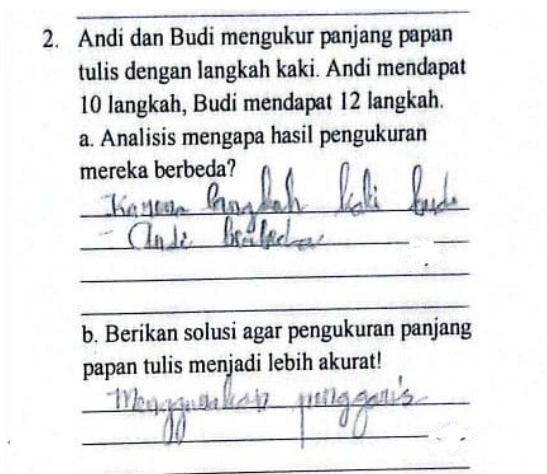 2. Andi dan Budi mengukur panjang papan
tulis dengan langkah kaki. Andi mendapat
10 langkah, Budi mendapat 12 langkah.
a. Analisis mengapa hasil pengukuran
mereka berbeda?
Karena langkah kaki Budi
- Andi berbeda
b. Berikan solusi agar pengukuran panjang
papan tulis menjadi lebih akurat!
Menggunakan penggaris